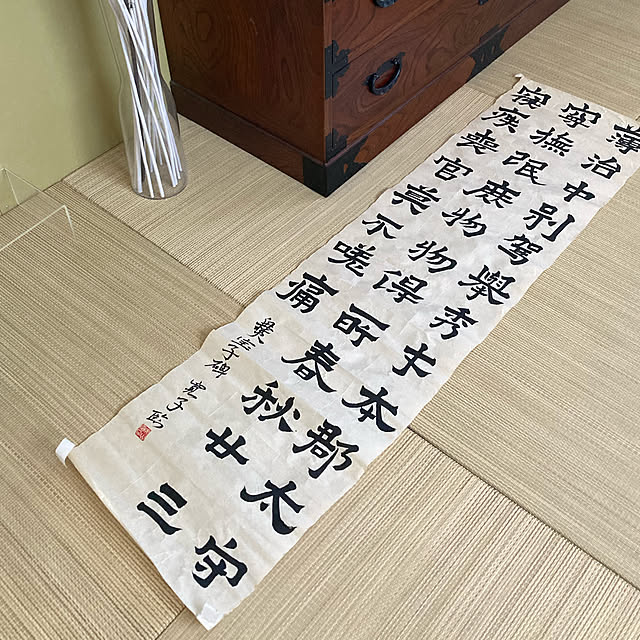 薄治中別駕舉秀才本郡太守
寧撫氓庶物物得所春秋廿三
寑疾喪官莫不嗟痛
爨宝子碑 寛子臨